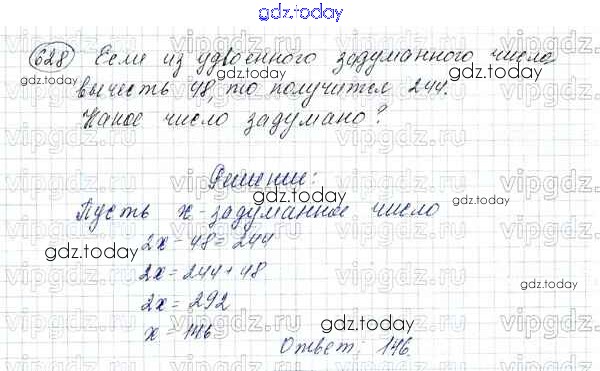 gdz.today
628 Если из удвоенного задуманного числа
вычесть 48, то получится 244.
Какое число задумано?
Решение:
Пусть x - задуманное число
2x - 48 = 244
2x = 244 + 48
2x = 292
x = 146
Ответ: 146.
gdz.today
gdz.today
gdz.today
gdz.today
gdz.today
gdz.today
gdz.today
vipgdz.ru
vipgdz.ru
vipgdz.ru